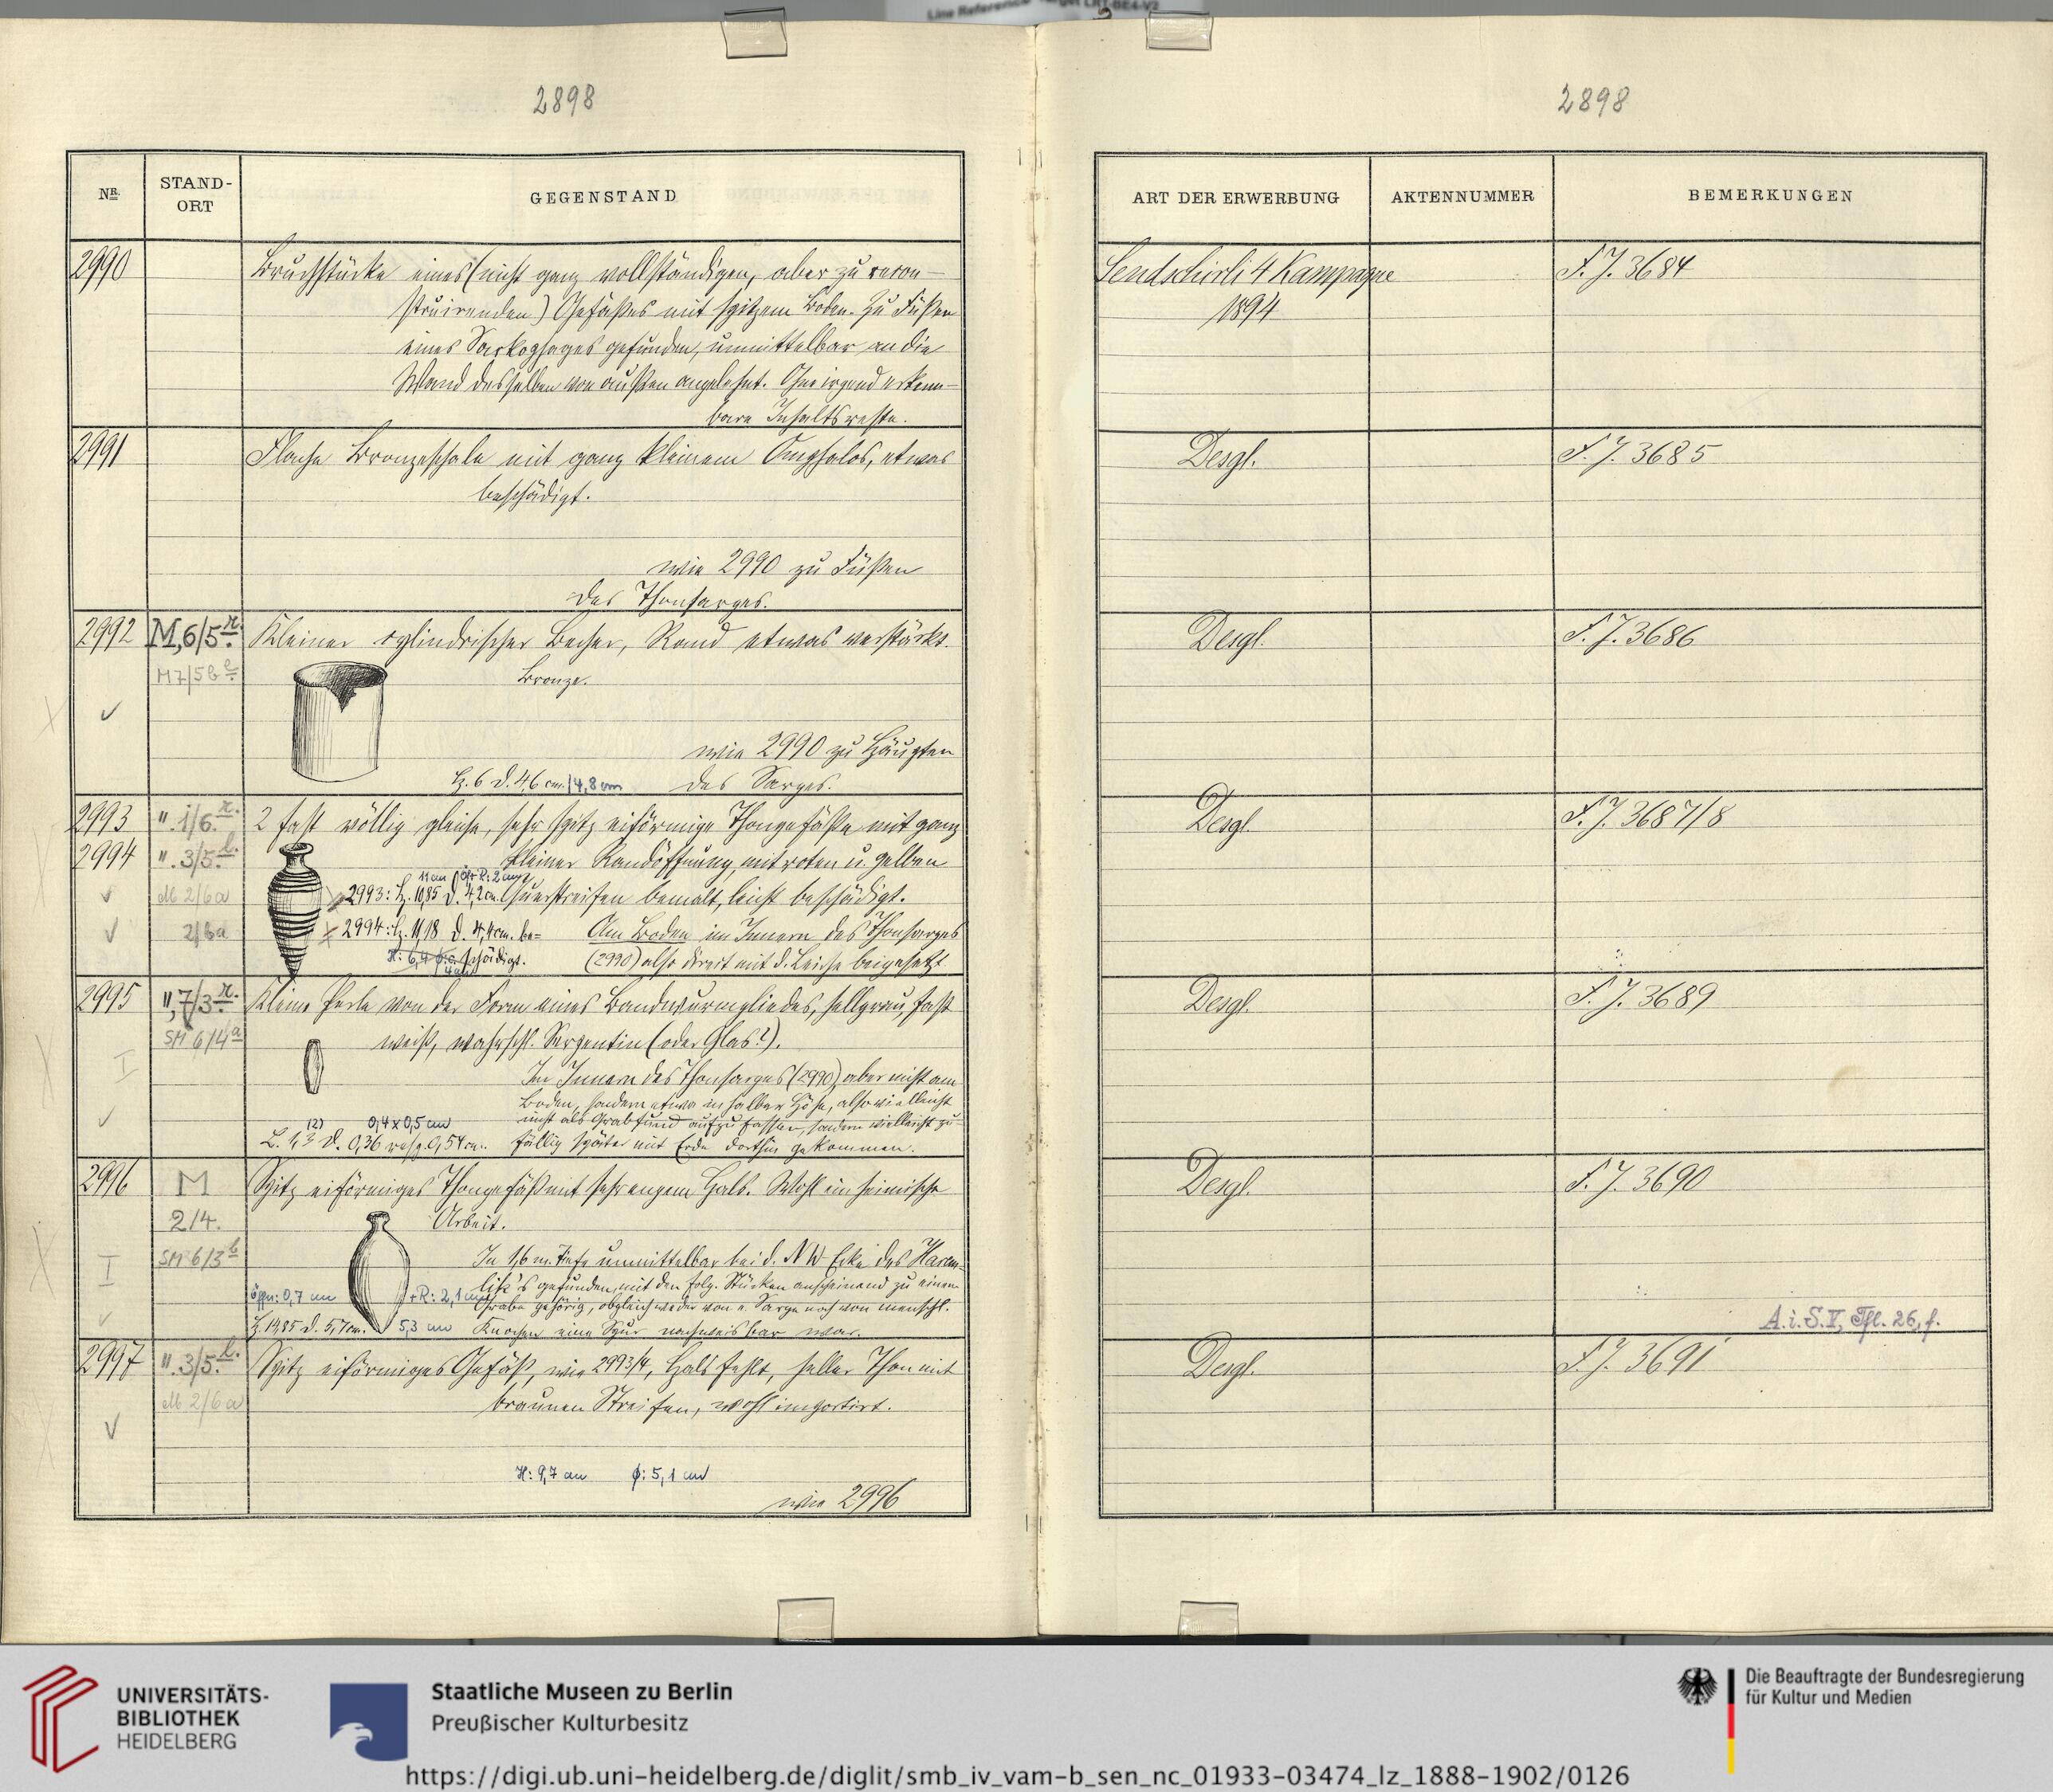 Line Reference Target LRT-BE4-V2
2898
Nr.
STAND-
ORT
GEGENSTAND
2990
Bruchstücke eines (nicht ganz vollständigen, aber zu recon-
struirenden) Gefäßes mit spitzem Boden. Zu Füßen
eines Sarkophages gefunden, unmittelbar an die
Wand desselben von außen angelehnt. Ohne irgend erkenn-
bare Inhaltsreste.
2991
Flache Bronzeschale mit ganz kleinem Omphalos, etwas
beschädigt.
wie 2990 zu Füßen
des Thonsarges.
2992 M,6/5 r. Kleiner cylindrischer Becher, Rand etwas verstärkt.
M7/5b
Bronze.
✓
wie 2990 zu Häupten
H. 6 d. 4,6 cm. /4,8 cm des Sarges.
2993 ". 1/6. r. 2 fast völlig gleiche, sehr spitz eiförmige Thongefäße mit ganz
2994 ". 3/5. l. kleiner Randöffnung, mit roten u. gelben
11 cm Ö+R: 2 cm
✓ M 2/6a 2993: H. 10,85 d. 4,2 cm. Querstreifen bemalt, leicht beschädigt.
✓ 2/6a 2994: H. 11,18 d. 4,4 cm. be= Am Boden im Innern des Thonsarges
schädigt. (2990) also direit mit d. Leiche beigesetzt
2995 ", 7/3 r. Kleine Perle von der Form eines Bandwurmgliedes, hellgrau, fast
SM 6/4a weiß, wahrschl. Serpentin (oder Glas?).
I
Im Innern des Thonsarges (2990), aber nicht am
Boden, sondern etwa in halber Höhe, also vielleicht
✓ (2) 0,4 x 0,5 cm nicht als Grabfund aufzufassen, sondern vielleicht zu-
L. 1,3 d. 0,36 resp. 0,54 cm. fällig später mit Erde dorthin gekommen.
2996 M Spitz eiförmiges Thongefäß mit sehr engem Hals. Wohl einheimische
2/4. Arbeit.
I SM 6/3b In 1,6 m. Tiefe unmittelbar bei d. NW-Ecke des Haram-
lik's gefunden, mit den folg. Stücken anscheinend zu einem
Öffn: 0,7 cm +R: 2,1 cm Grabe gehörig, obgleich weder von e. Sarge noch von menschl.
✓ H. 14,85 d. 5,1 cm. 5,3 cm Knochen eine Spur nachweisbar war.
2997 ". 3/5. l. Spitz eiförmiges Gefäß, wie 2993/4, Hals fehlt, heller Thon mit
M 2/6a braunen Streifen, wohl importirt.
✓
H: 9,7 cm ϕ: 5,1 cm
wie 2996
2898
ART DER ERWERBUNG
AKTENNUMMER
BEMERKUNGEN
Sendschirli 4 Kampagne F.J. 3684
1894
Desgl. F.J. 3685
Desgl. F.J. 3686
Desgl. F.J. 3687/8
Desgl. F.J. 3689
Desgl. F.J. 3690
A.i.S. V, Tfl. 26, f.
Desgl. F.J. 3691
UNIVERSITÄTS-
BIBLIOTHEK
HEIDELBERG
Staatliche Museen zu Berlin
Preußischer Kulturbesitz
Die Beauftragte der Bundesregierung
für Kultur und Medien
https://digi.ub.uni-heidelberg.de/diglit/smb_iv_vam-b_sen_nc_01933-03474_lz_1888-1902/0126